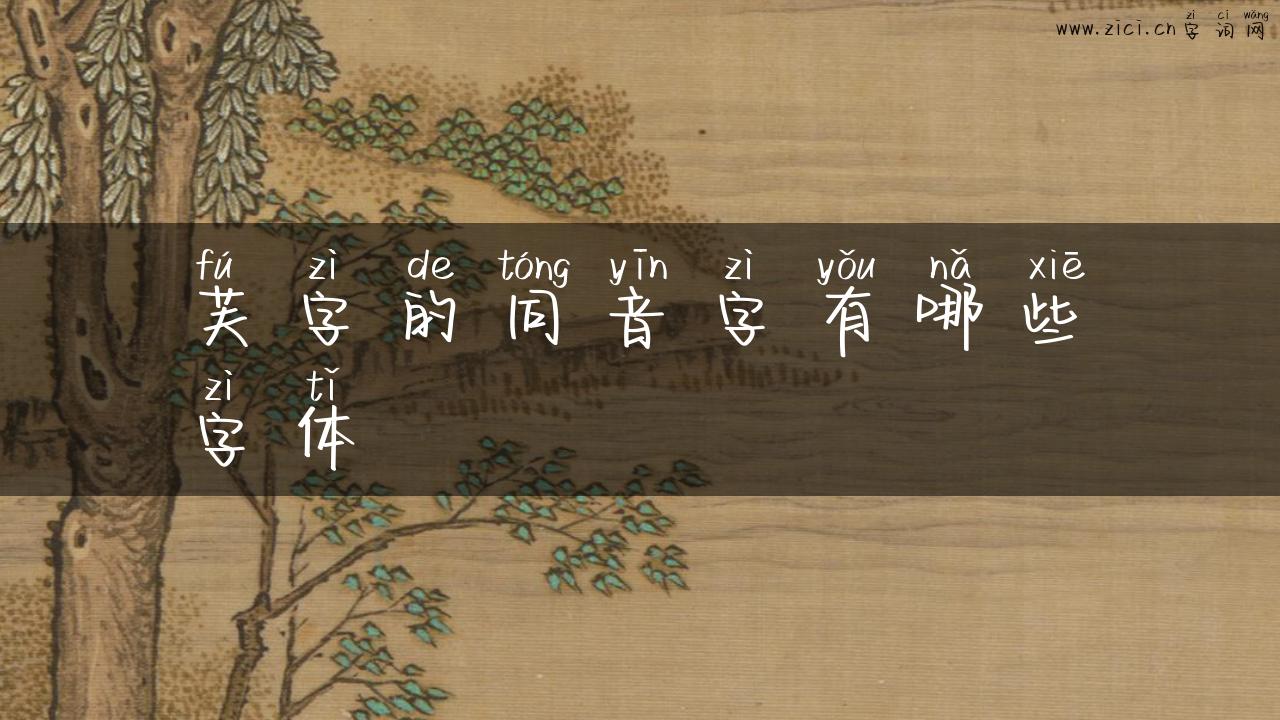 zì cí wǎng
www.zici.cn 字词网
fú zì de tóng yīn zì yǒu nǎ xiē
芙字的同音字有哪些
zì tǐ
字体